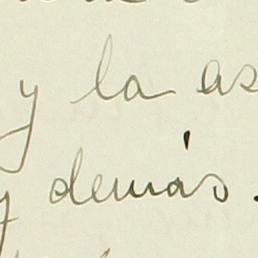 y la as
y demás.